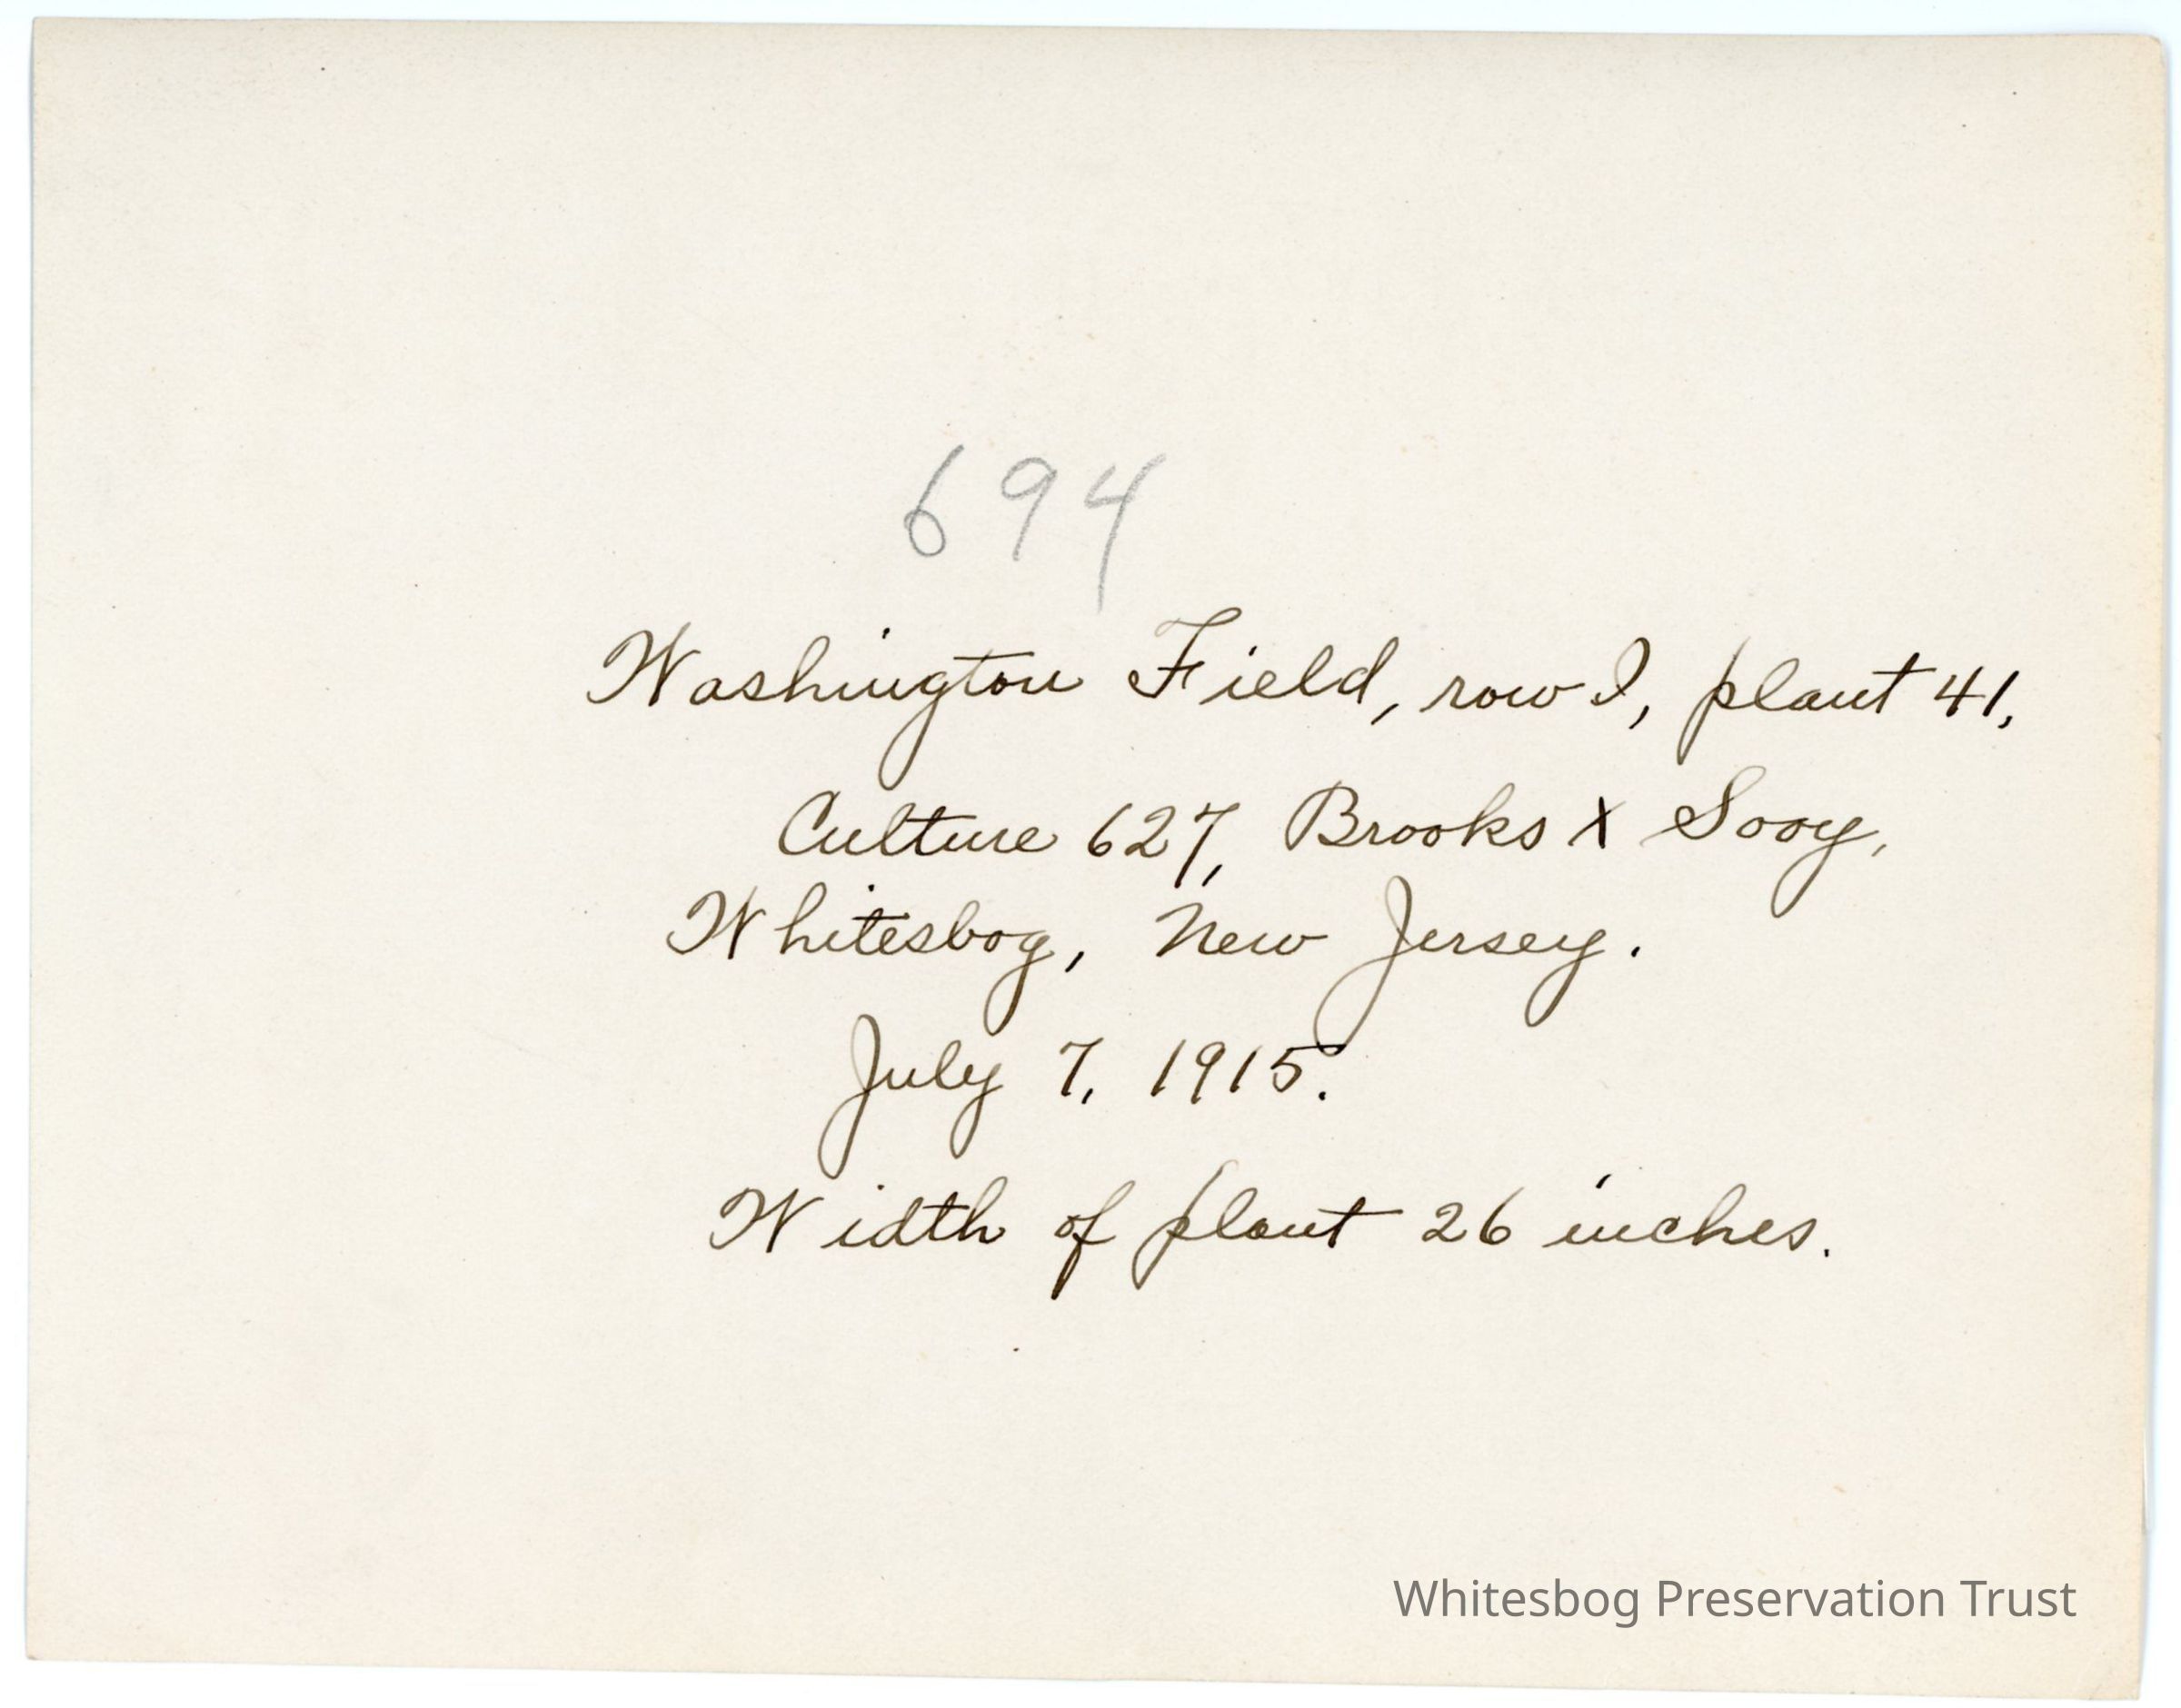 694
Washington Field, row I, plant 41,
Culture 627, Brooks X Sooy,
Whitesbog, New Jersey.
July 7, 1915.
Width of plant 26 inches.
Whitesbog Preservation Trust